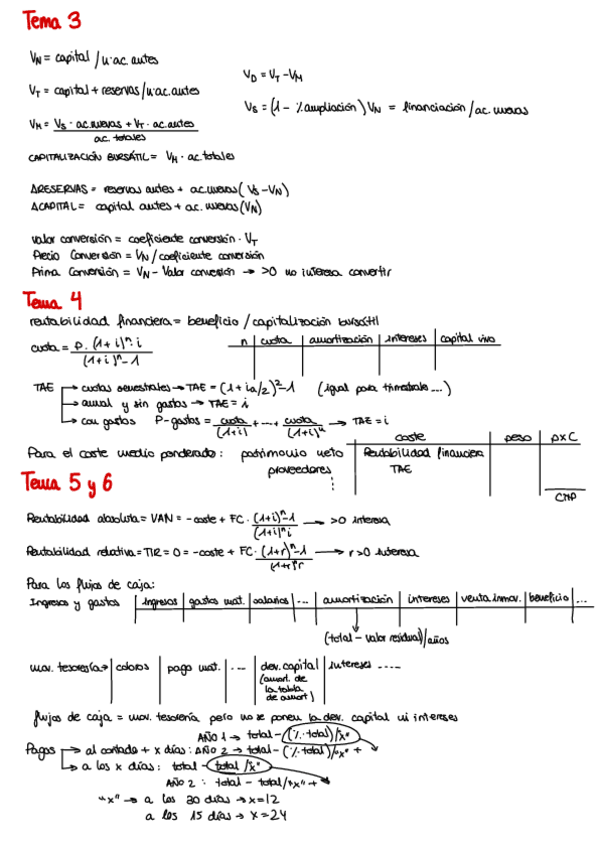 Tema 3
V_N = capital / u.ac. antes
V_D = V_T - V_M
V_T = capital + reservas / u.ac. antes
V_S = (1 - % ampliación) V_N = financiación / ac. nuevas
V_M = V_S · ac. nuevas + V_T · ac. antes
ac. totales
CAPITALIZACIÓN BURSÁTIL = V_M · ac. totales
ΔRESERVAS = reservas antes + ac. nuevas (V_S - V_N)
ΔCAPITAL = capital antes + ac. nuevas (V_N)
valor conversión = coeficiente conversión · V_T
Precio Conversión = V_N / coeficiente conversión
Prima Conversión = V_N - Valor conversión → >0 no interesa convertir
Tema 4
rentabilidad financiera = beneficio / capitalización bursátil
cuota = P · (1+i)^n · i
(1+i)^n - 1
n | cuota | amortización | intereses | capital vivo
TAE → cuotas semestrales → TAE = (1 + ia/2)^2 - 1 (igual para trimestrales ...)
→ anual y sin gastos → TAE = i
→ con gastos P - gastos = cuota/(1+i) + ... + cuota/(1+i)^n → TAE = i
coste | peso | p×C
Para el coste medio ponderado: patrimonio neto | Rentabilidad financiera
proveedores | TAE
⋮
CMP
Tema 5 y 6
Rentabilidad absoluta = VAN = -coste + FC · (1+i)^n - 1 / (1+i)^n i → >0 interesa
Rentabilidad relativa = TIR = 0 = -coste + FC · (1+r)^n - 1 / (1+r)^n r → r>0 interesa
Para los flujos de caja:
Ingresos y gastos | ingresos | gastos mat. | salarios | ... | amortización | intereses | venta inmov. | beneficio | ...
(total - valor residual) / años
mov. tesorería → | cobros | pago mat. | ... | dev. capital | intereses ....
(amort. de
la tabla
de amort)
flujos de caja = mov. tesorería pero no se ponen la dev. capital ni intereses
AÑO 1 → total - (% · total) / "x"
Pagos → al contado + x días: AÑO 2 → total - (% · total) / "x" +
→ a los x días: total - total / "x"
AÑO 2: total - total / "x" +
"x" → a los 30 días → x = 12
a los 15 días → x = 24